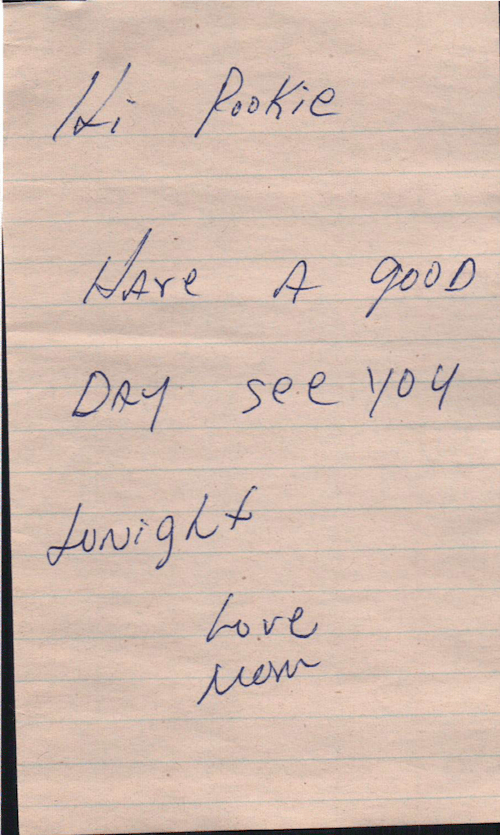 Hi Pookie
HAve A gooD
DAy see you
tonight
Love
Mom